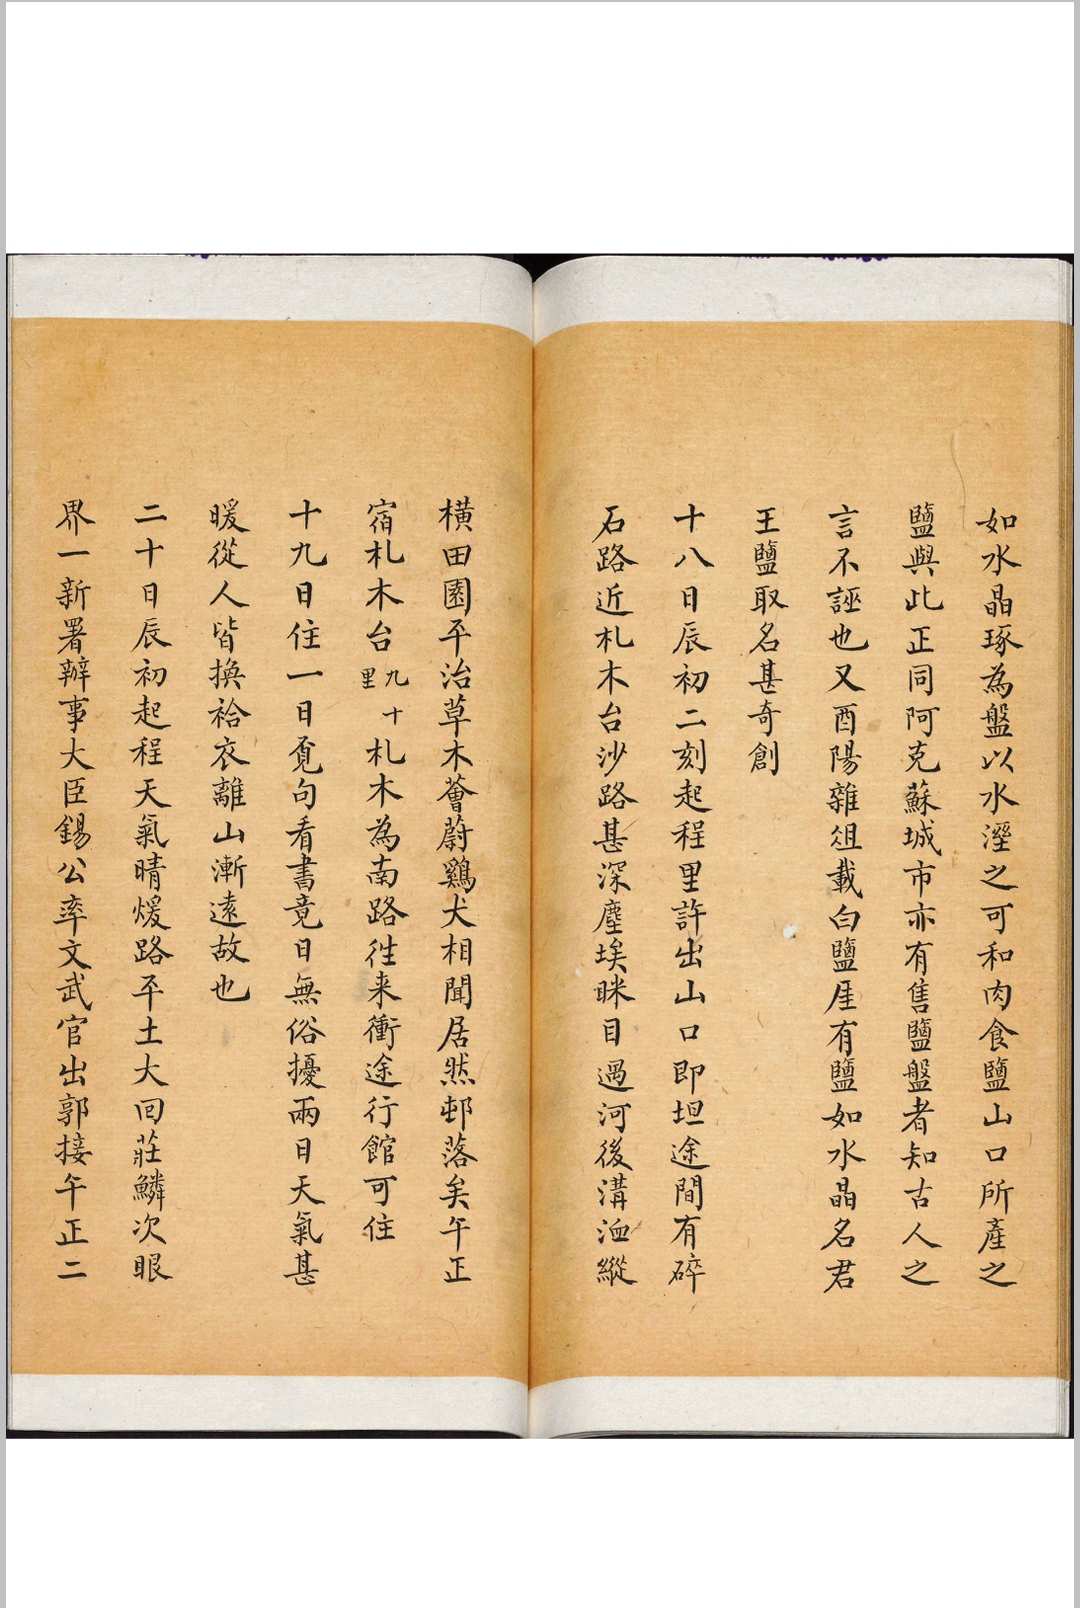 如水晶琢為盤以水溼之可和肉食鹽山口所產之
鹽與此正同阿克蘇城市亦有售鹽盤者知古人之
言不誣也又酉陽雜俎載白鹽厓有鹽如水晶名君
王鹽取名甚奇創
十八日辰初二刻起程里許出山口即坦途間有碎
石路近札木台沙路甚深塵埃眯目過河後溝洫縱
橫田園平治草木薈蔚鷄犬相聞居然邨落矣午正
宿札木台九十里札木為南路往来衝途行館可住
十九日住一日覓句看書竟日無俗擾兩日天氣甚
暖從人皆換袷衣離山漸遠故也
二十日辰初起程天氣晴煖路平土大回莊鱗次眼
界一新署辦事大臣錫公率文武官出郭接午正二